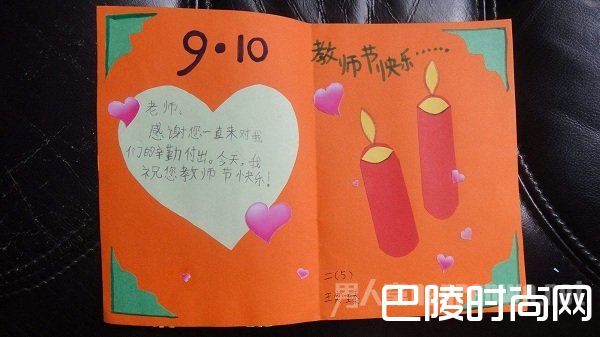 9·10
老师、
感谢您一直来对我
们的辛勤付出。今天，我
祝您教师节快乐！
教师节快乐……
二(5)
巴陵时尚网